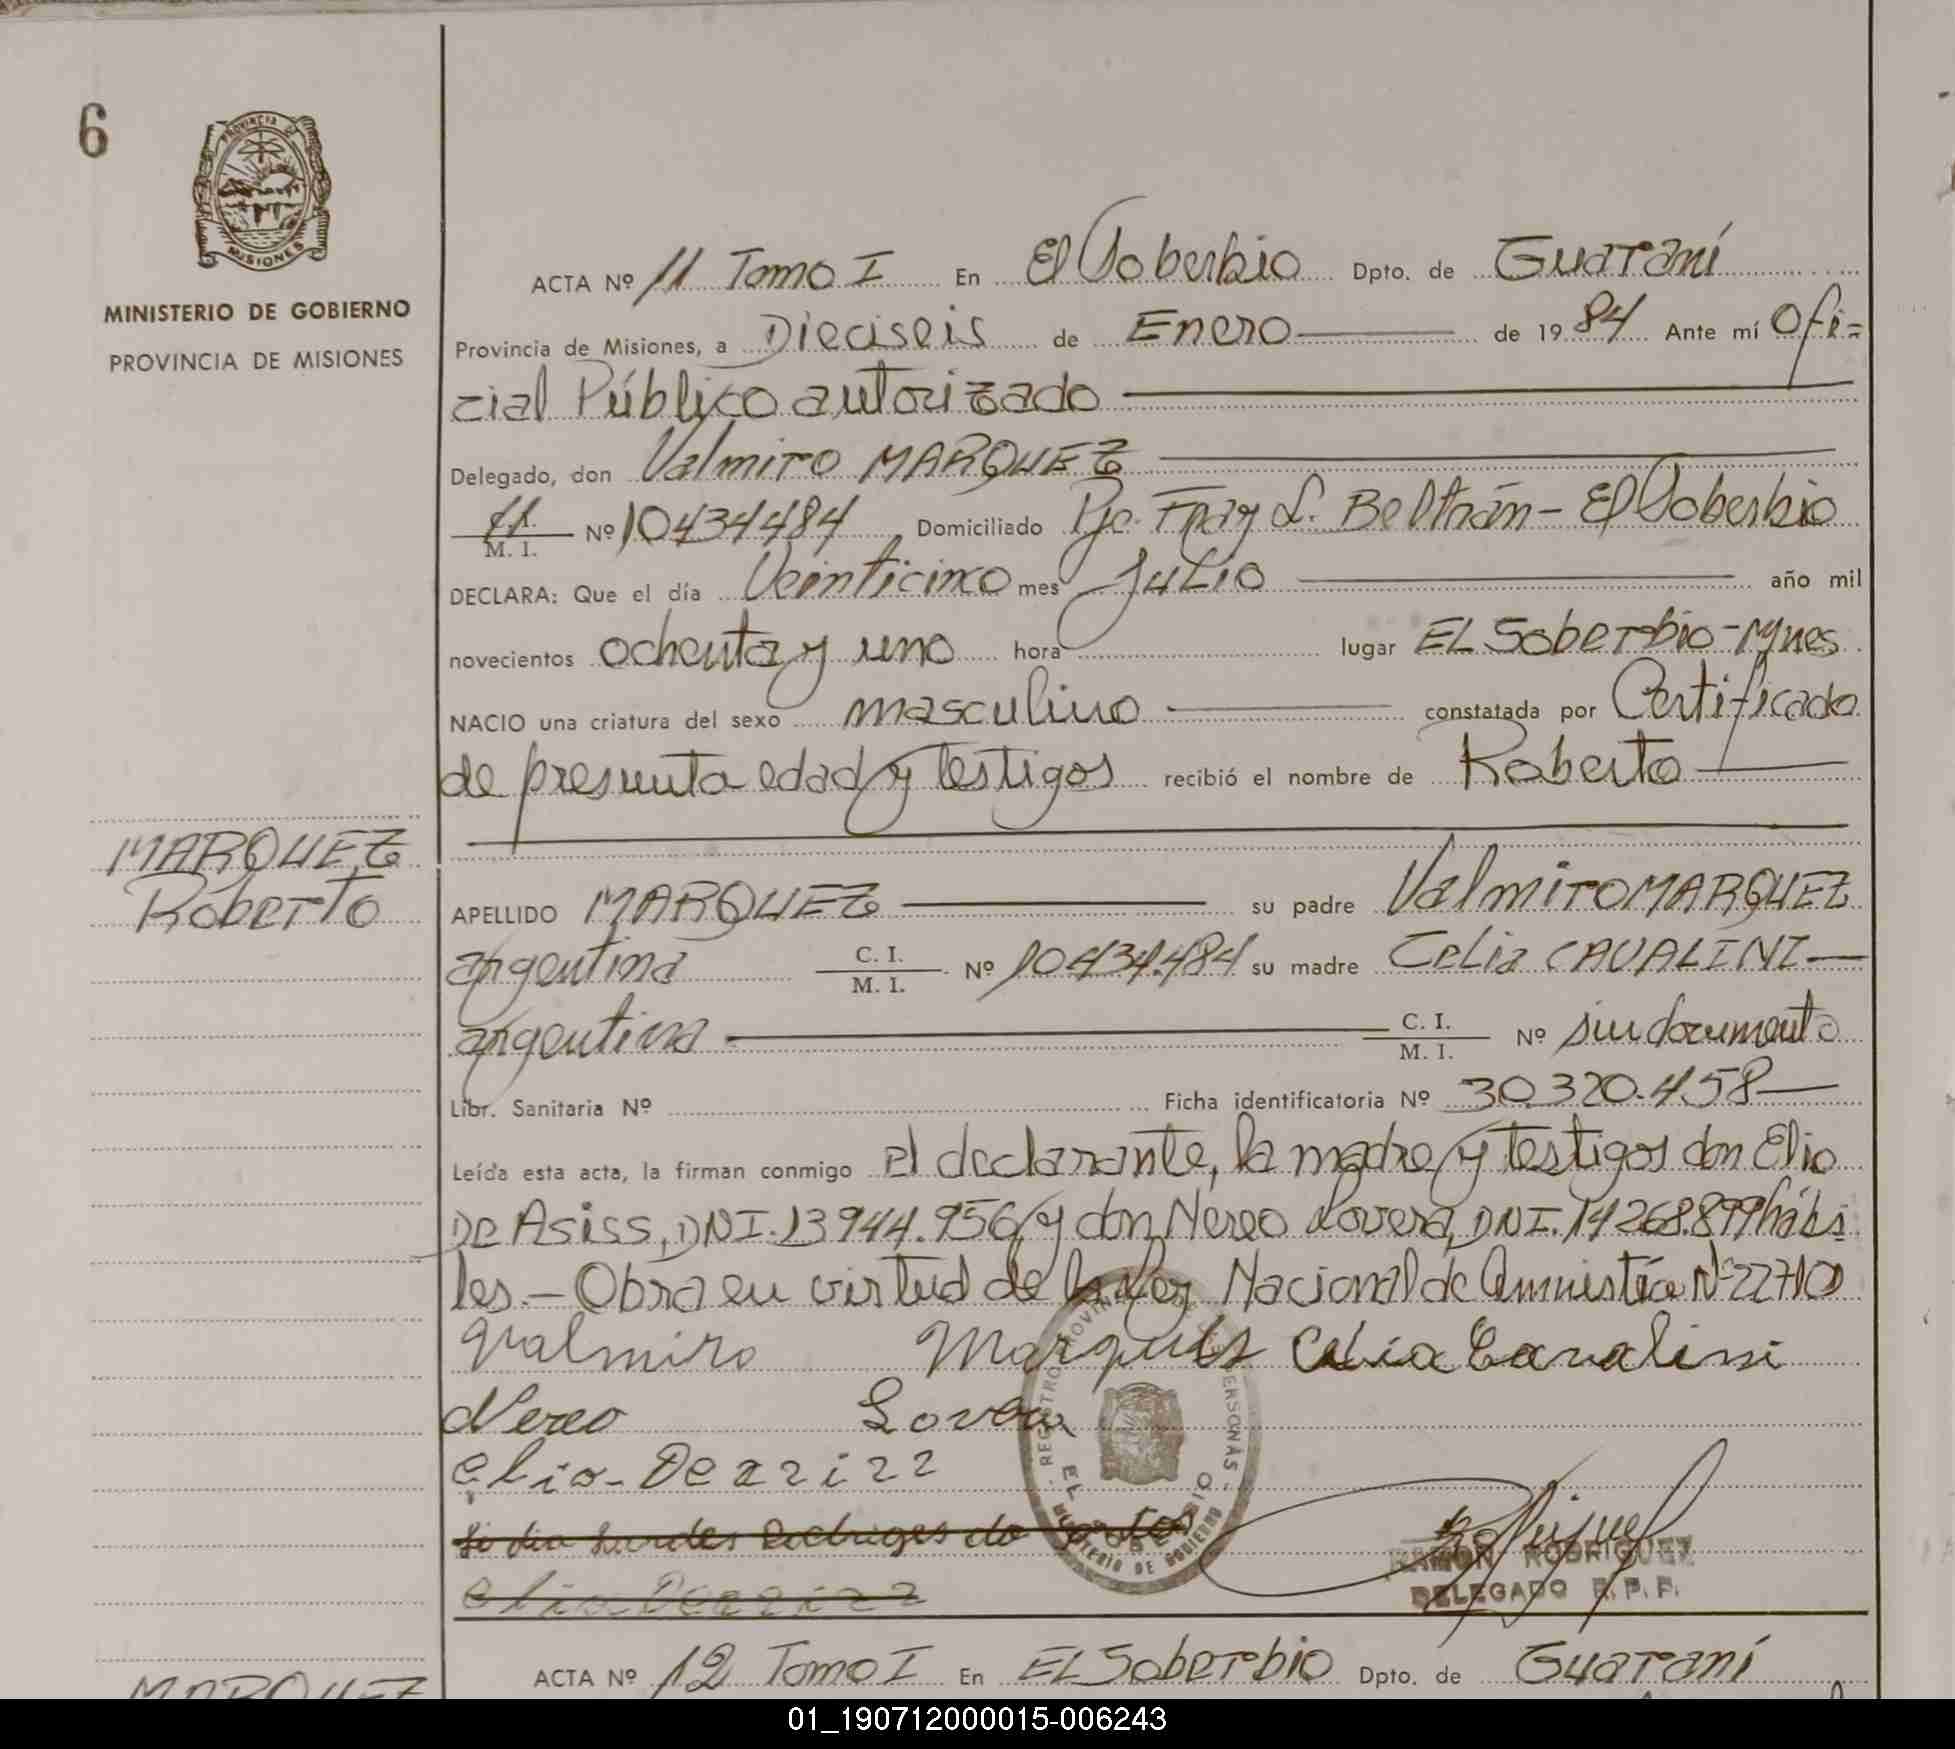 6
PROVINCIA DE
MISIONES
MINISTERIO DE GOBIERNO
PROVINCIA DE MISIONES
ACTA Nº 11 Tomo I En El Soberbio Dpto. de Guaraní
Provincia de Misiones, a Dieciseis de Enero de 1984 Ante mí Ofi=
cial Público autorizado
Delegado, don Valmiro MARQUEZ
C.I.
M. I. Nº 10434484 Domiciliado Pje. Fray L. Beltrán - El Soberbio
DECLARA: Que el día Veinticinco mes Julio año mil
novecientos ochenta y uno hora lugar EL Soberbio - Mnes
NACIO una criatura del sexo masculino constatada por Certificado
de presunta edad y testigos recibió el nombre de Roberto
MARQUEZ
Roberto
APELLIDO MARQUEZ su padre Valmiro MARQUEZ
argentina C. I. M. I. Nº 10434.484 su madre Celia CAVALINI
argentina C. I. M. I. Nº sin documento
Libr. Sanitaria Nº Ficha identificatoria Nº 30.320.458
Leída esta acta, la firman conmigo el declarante, la madre y testigos don Elio
De Asiss, DNI. 13944.956 y don Nereo Lovera, DNI. 14268.899 hábi
les. - Obra en virtud de la Ley Nacional de Amnistía Nº 22710
Valmiro Marques Celia Cavalini
Nereo Lovera
elio
REGISTRO PROVINCIAL DE PERSONAS
EL SOBERBIO
MINISTERIO DE GOBIERNO
RAMON RODRIGUEZ
DELEGADO R.P.P.
ACTA Nº 12 Tomo I En EL Soberbio Dpto. de Guaraní
MARQUEZ
01_190712000015-006243